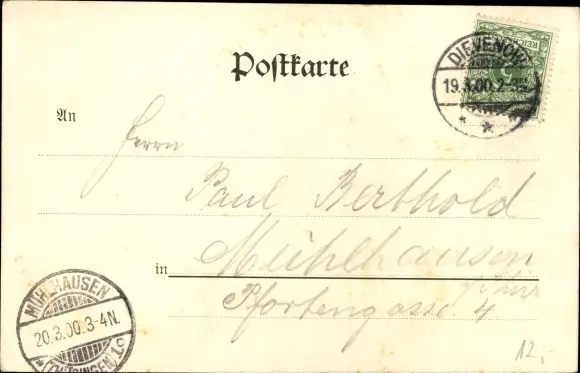 Postkarte
REICHSPOST
5
DIEVENOW
19.3.00.2-3N.
An
Herrn
Paul Berthold
in Mühlhausen
i/Thür
Pfortengasse 4
MÜHLHAUSEN
20.3.00.3-4N.
* (THÜRINGEN) 1c
12,-